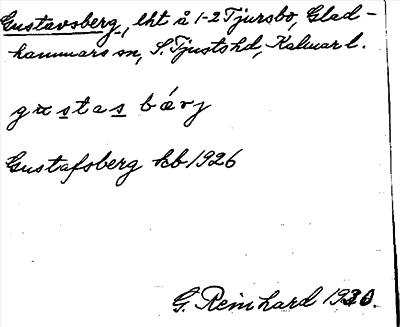 Gustavsberg, lht å 1-2 Tjursbo, Glad-
hammars sn, S. Tjusts hd, Kalmar l.
gustas bærj
Gustafsberg kb 1926
G. Reinhard 1930.